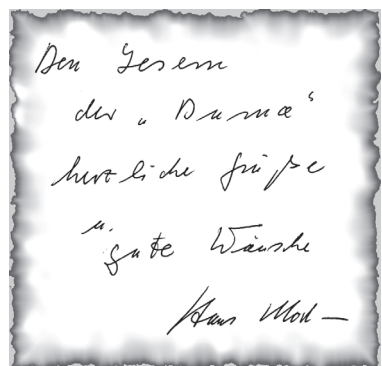 Den Lesern
der „Duma“
herzliche Grüße
u. gute Wünsche
Hans